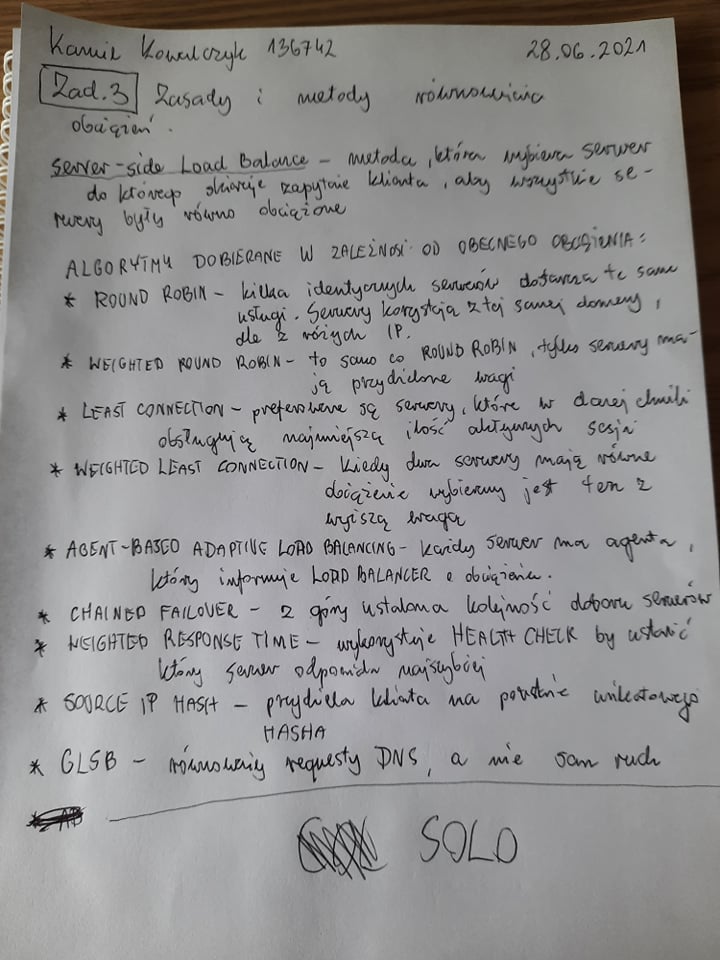 Kamil Kowalczyk 136742 28.06.2021
Zad.3 Zasady i metody równoważenia
obciążeń.
Server-side Load Balance – metoda, która wybiera serwer
do którego skieruje zapytanie klienta, aby wszystkie se-
rwery były równo obciążone
ALGORYTMY DOBIERANE W ZALEŻNOŚCI OD OBECNEGO OBCIĄŻENIA:
* ROUND ROBIN – kilka identycznych serwerów dostarcza te same
usługi. Serwery korzystają z tej samej domeny,
ale z różnych IP.
* WEIGHTED ROUND ROBIN – to samo co ROUND ROBIN, tylko serwery ma-
ją przydzielone wagi
* LEAST CONNECTION – preferowane są serwery, które w danej chwili
obsługują najmniejszą ilość aktywnych sesji
* WEIGHTED LEAST CONNECTION – kiedy dwa serwery mają równe
obciążenie wybierany jest ten z
wyższą wagą
* AGENT-BASED ADAPTIVE LOAD BALANCING – każdy serwer ma agenta,
który informuje LOAD BALANCER o obciążeniu.
* CHAINED FAILOVER – z góry ustalona kolejność doboru serwerów
* WEIGHTED RESPONSE TIME – wykorzystuje HEALTH CHECK by ustalić
który serwer odpowiada najszybciej
* SOURCE IP HASH – przydziela klienta na podstawie unikatowego
HASHA
* GLSB – równoważy requesty DNS, a nie sam ruch
SOLO